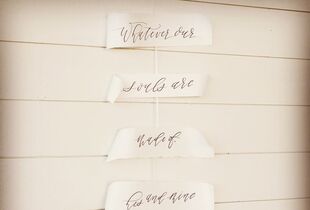 Whatever our
souls are
made of
his and mine